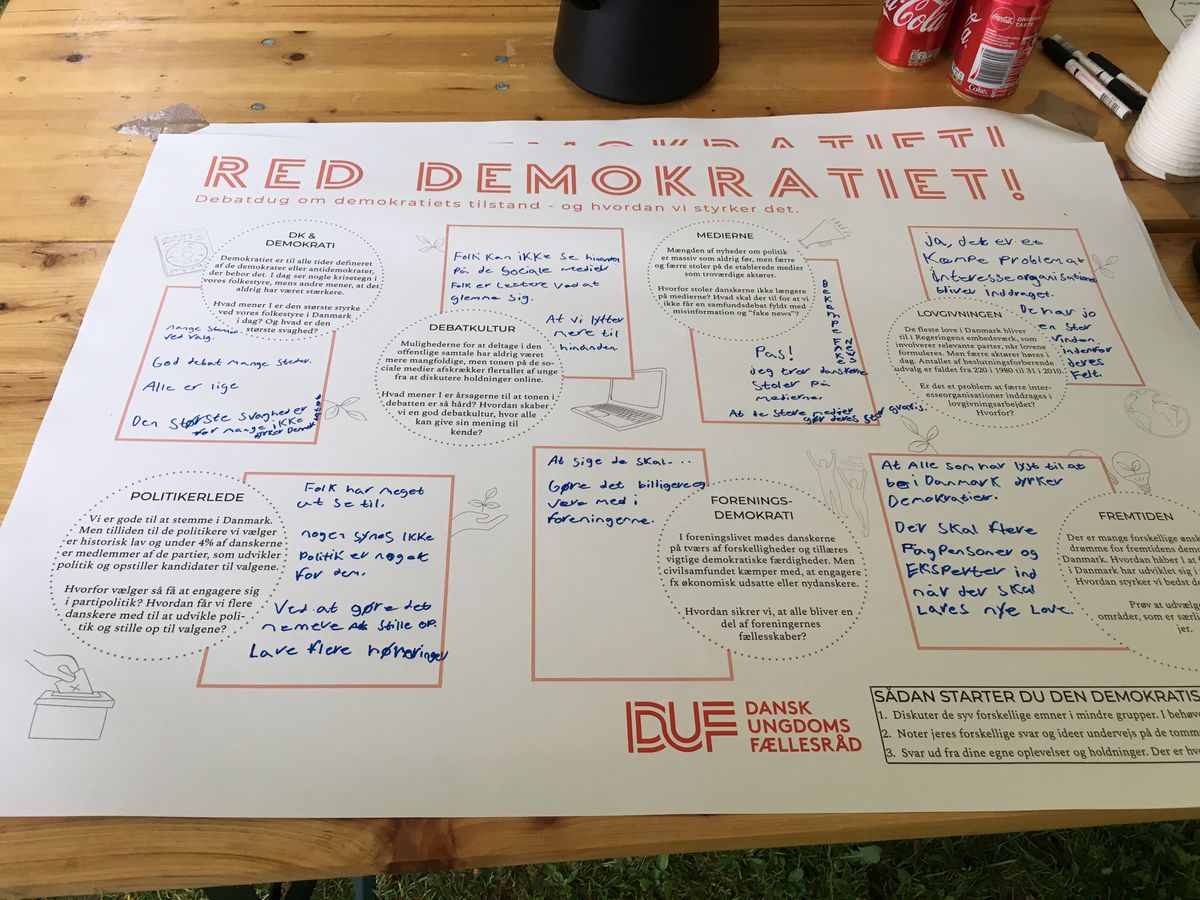 RED DEMOKRATIET!
Debatdug om demokratiets tilstand - og hvordan vi styrker det.
DK &
DEMOKRATI
Demokratiet er til alle tider defineret
af de demokrater eller antidemokrater,
der bebor det. I dag ser nogle krisetegn i
vores folkestyre, mens andre mener, at det
aldrig har været stærkere.
Hvad mener I er den største styrke
ved vores folkestyre i Danmark
i dag? Og hvad er den
største svaghed?
mange
ved valg.
God debat mange steder.
Alle er lige
Den største svaghed er
for mange ikke
dyrker Demokratiet
Folk kan ikke se hinanden
på de sociale medier
Folk er lettere ved at
glemme sig.
At vi lytter
mere til
hinanden
DEBATKULTUR
Mulighederne for at deltage i den
offentlige samtale har aldrig været
mere mangfoldige, men tonen på de so-
ciale medier afskrækker flertallet af unge
fra at diskutere holdninger online.
Hvad mener I er årsagerne til at tonen i
debatten er så hård? Hvordan skaber
vi en god debatkultur, hvor alle
kan give sin mening til
kende?
MEDIERNE
Mængden af nyheder om politik
er massiv som aldrig før, men færre
og færre stoler på de etablerede medier
som troværdige aktører.
Hvorfor stoler danskerne ikke længere
på medierne? Hvad skal der til for at vi
ikke får en samfundsdebat fyldt med
misinformation og "fake news"?
Bekæmpe
Fake
News
Pas!
jeg tror danskerne
stoler på
medierne.
At de store medier
gør deres stof gratis.
ja, det er et
Kæmpe problem at
interesseorganisationer
bliver inddraget.
De har jo
en stor
viden
indenfor
deres
felt.
LOVGIVNINGEN
De fleste love i Danmark bliver
til i Regeringens embedsværk, som
involverer relevante parter, når lovene
formuleres. Men færre aktører høres i
dag. Antallet af beslutningsforberende
udvalg er faldet fra 220 i 1980 til 31 i 2010.
Er det et problem at færre inter-
esseorganisationer inddrages i
lovgivningsarbejdet?
Hvorfor?
POLITIKERLEDE
Vi er gode til at stemme i Danmark.
Men tilliden til de politikere vi vælger
er historisk lav og under 4% af danskerne
er medlemmer af de partier, som udvikler
politik og opstiller kandidater til valgene.
Hvorfor vælger så få at engagere sig
i partipolitik? Hvordan får vi flere
danskere med til at udvikle poli-
tik og stille op til valgene?
Folk har meget
at se til.
nogen synes ikke
politik er noget
for dem.
Ved at gøre det
nemere at stille op.
Lave flere høringer
At sige de skal...
Gøre det billigere og
være med i
foreningerne.
FORENINGS-
DEMOKRATI
I foreningslivet mødes danskerne
på tværs af forskelligheder og tillæres
vigtige demokratiske færdigheder. Men
civilsamfundet kæmper med, at engagere
fx økonomisk udsatte eller nydanskere.
Hvordan sikrer vi, at alle bliver en
del af foreningernes
fællesskaber?
At Alle som har lyst til at
bo i Danmark dyrker
Demokratiet.
Der skal flere
Fagpersoner og
EKSperter ind
når der skal
laves nye love.
FREMTIDEN
Der er mange forskellige ønsk
drømme for fremtidens dem
Danmark. Hvordan håber I at
i Danmark har udviklet sig i
Hvordan styrker vi bedst d
Prøv at udvælg
områder, som er særli
jer.
DUF DANSK
UNGDOMS
FÆLLESRÅD
SÅDAN STARTER DU DEN DEMOKRATIS
1. Diskuter de syv forskellige emner i mindre grupper. I behøve
2. Noter jeres forskellige svar og ideer undervejs på de tomm
3. Svar ud fra dine egne oplevelser og holdninger. Der er hv
Coca-Cola
ORIGINAL
TASTE
Coke.